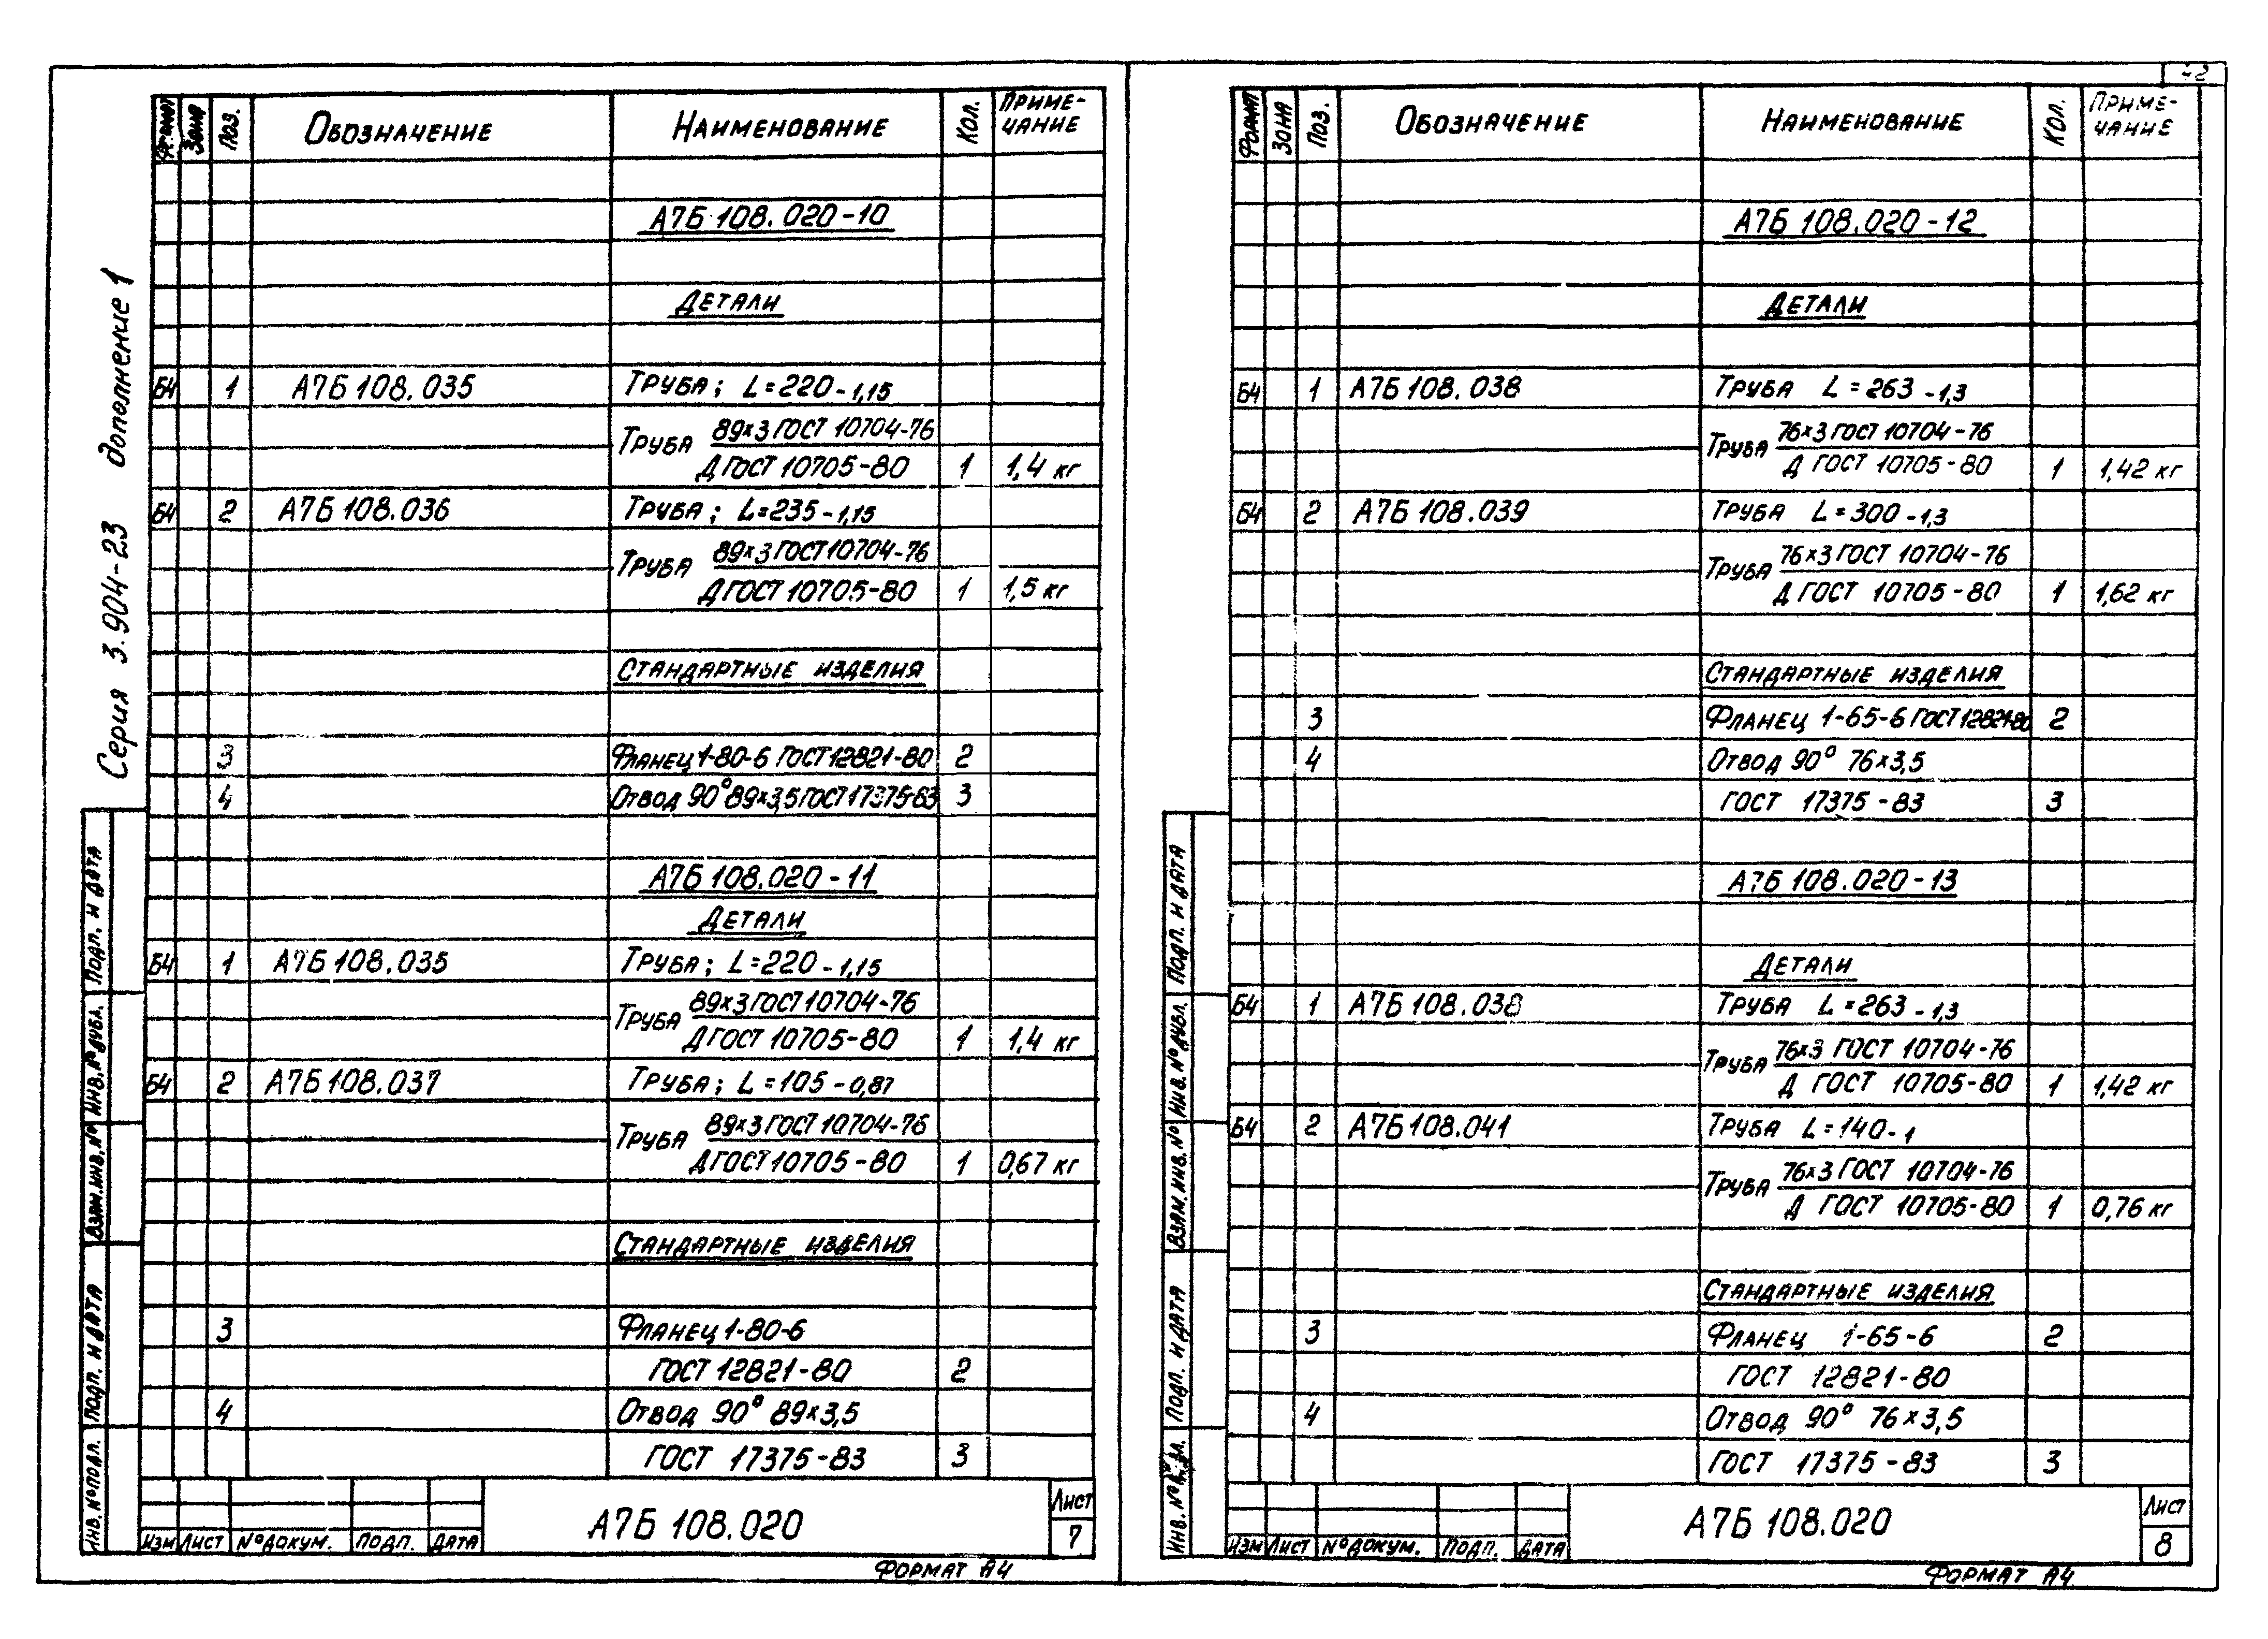 42
Серия 3.904-23 дополнение 1
Формат Зона Поз. Обозначение Наименование Кол. Приме-
чание
А7Б 108.020-10
Детали
Б4 1 А7Б 108.035 Труба; L=220-1,15
89х3 ГОСТ 10704-76
Труба
Д ГОСТ 10705-80 1 1,4 кг
Б4 2 А7Б 108.036 Труба; L=235-1,15
89х3 ГОСТ 10704-76
Труба
Д ГОСТ 10705-80 1 1,5 кг
Стандартные изделия
3 Фланец 1-80-6 ГОСТ 12821-80 2
4 Отвод 90° 89х3,5 ГОСТ 17375-83 3
А7Б 108.020-11
Детали
Б4 1 А7Б 108.035 Труба; L=220-1,15
89х3 ГОСТ 10704-76
Труба
Д ГОСТ 10705-80 1 1,4 кг
Б4 2 А7Б 108.037 Труба; L=105-0,87
89х3 ГОСТ 10704-76
Труба
Д ГОСТ 10705-80 1 0,67 кг
Стандартные изделия
3 Фланец 1-80-6
ГОСТ 12821-80 2
4 Отвод 90° 89х3,5
ГОСТ 17375-83 3
Инв. № подл. Подп. и дата Взам. инв. № Инв. № дубл. Подп. и дата
Изм Лист № докум. Подп. Дата
А7Б 108.020
Лист
7
Формат А4
Формат Зона Поз. Обозначение Наименование Кол. Приме-
чание
А7Б 108.020-12
Детали
Б4 1 А7Б 108.038 Труба L=263-1,3
76х3 ГОСТ 10704-76
Труба
Д ГОСТ 10705-80 1 1,42 кг
Б4 2 А7Б 108.039 Труба L=300-1,3
76х3 ГОСТ 10704-76
Труба
Д ГОСТ 10705-80 1 1,62 кг
Стандартные изделия
3 Фланец 1-65-6 ГОСТ 12821-80 2
4 Отвод 90° 76х3,5
ГОСТ 17375-83 3
А7Б 108.020-13
Детали
Б4 1 А7Б 108.038 Труба L=263-1,3
76х3 ГОСТ 10704-76
Труба
Д ГОСТ 10705-80 1 1,42 кг
Б4 2 А7Б 108.041 Труба L=140-1
76х3 ГОСТ 10704-76
Труба
Д ГОСТ 10705-80 1 0,76 кг
Стандартные изделия
3 Фланец 1-65-6 2
ГОСТ 12821-80
4 Отвод 90° 76х3,5
ГОСТ 17375-83 3
Инв. № подл. Подп. и дата Взам. инв. № Инв. № дубл. Подп. и дата
Изм Лист № докум. Подп. Дата
А7Б 108.020
Лист
8
Формат А4